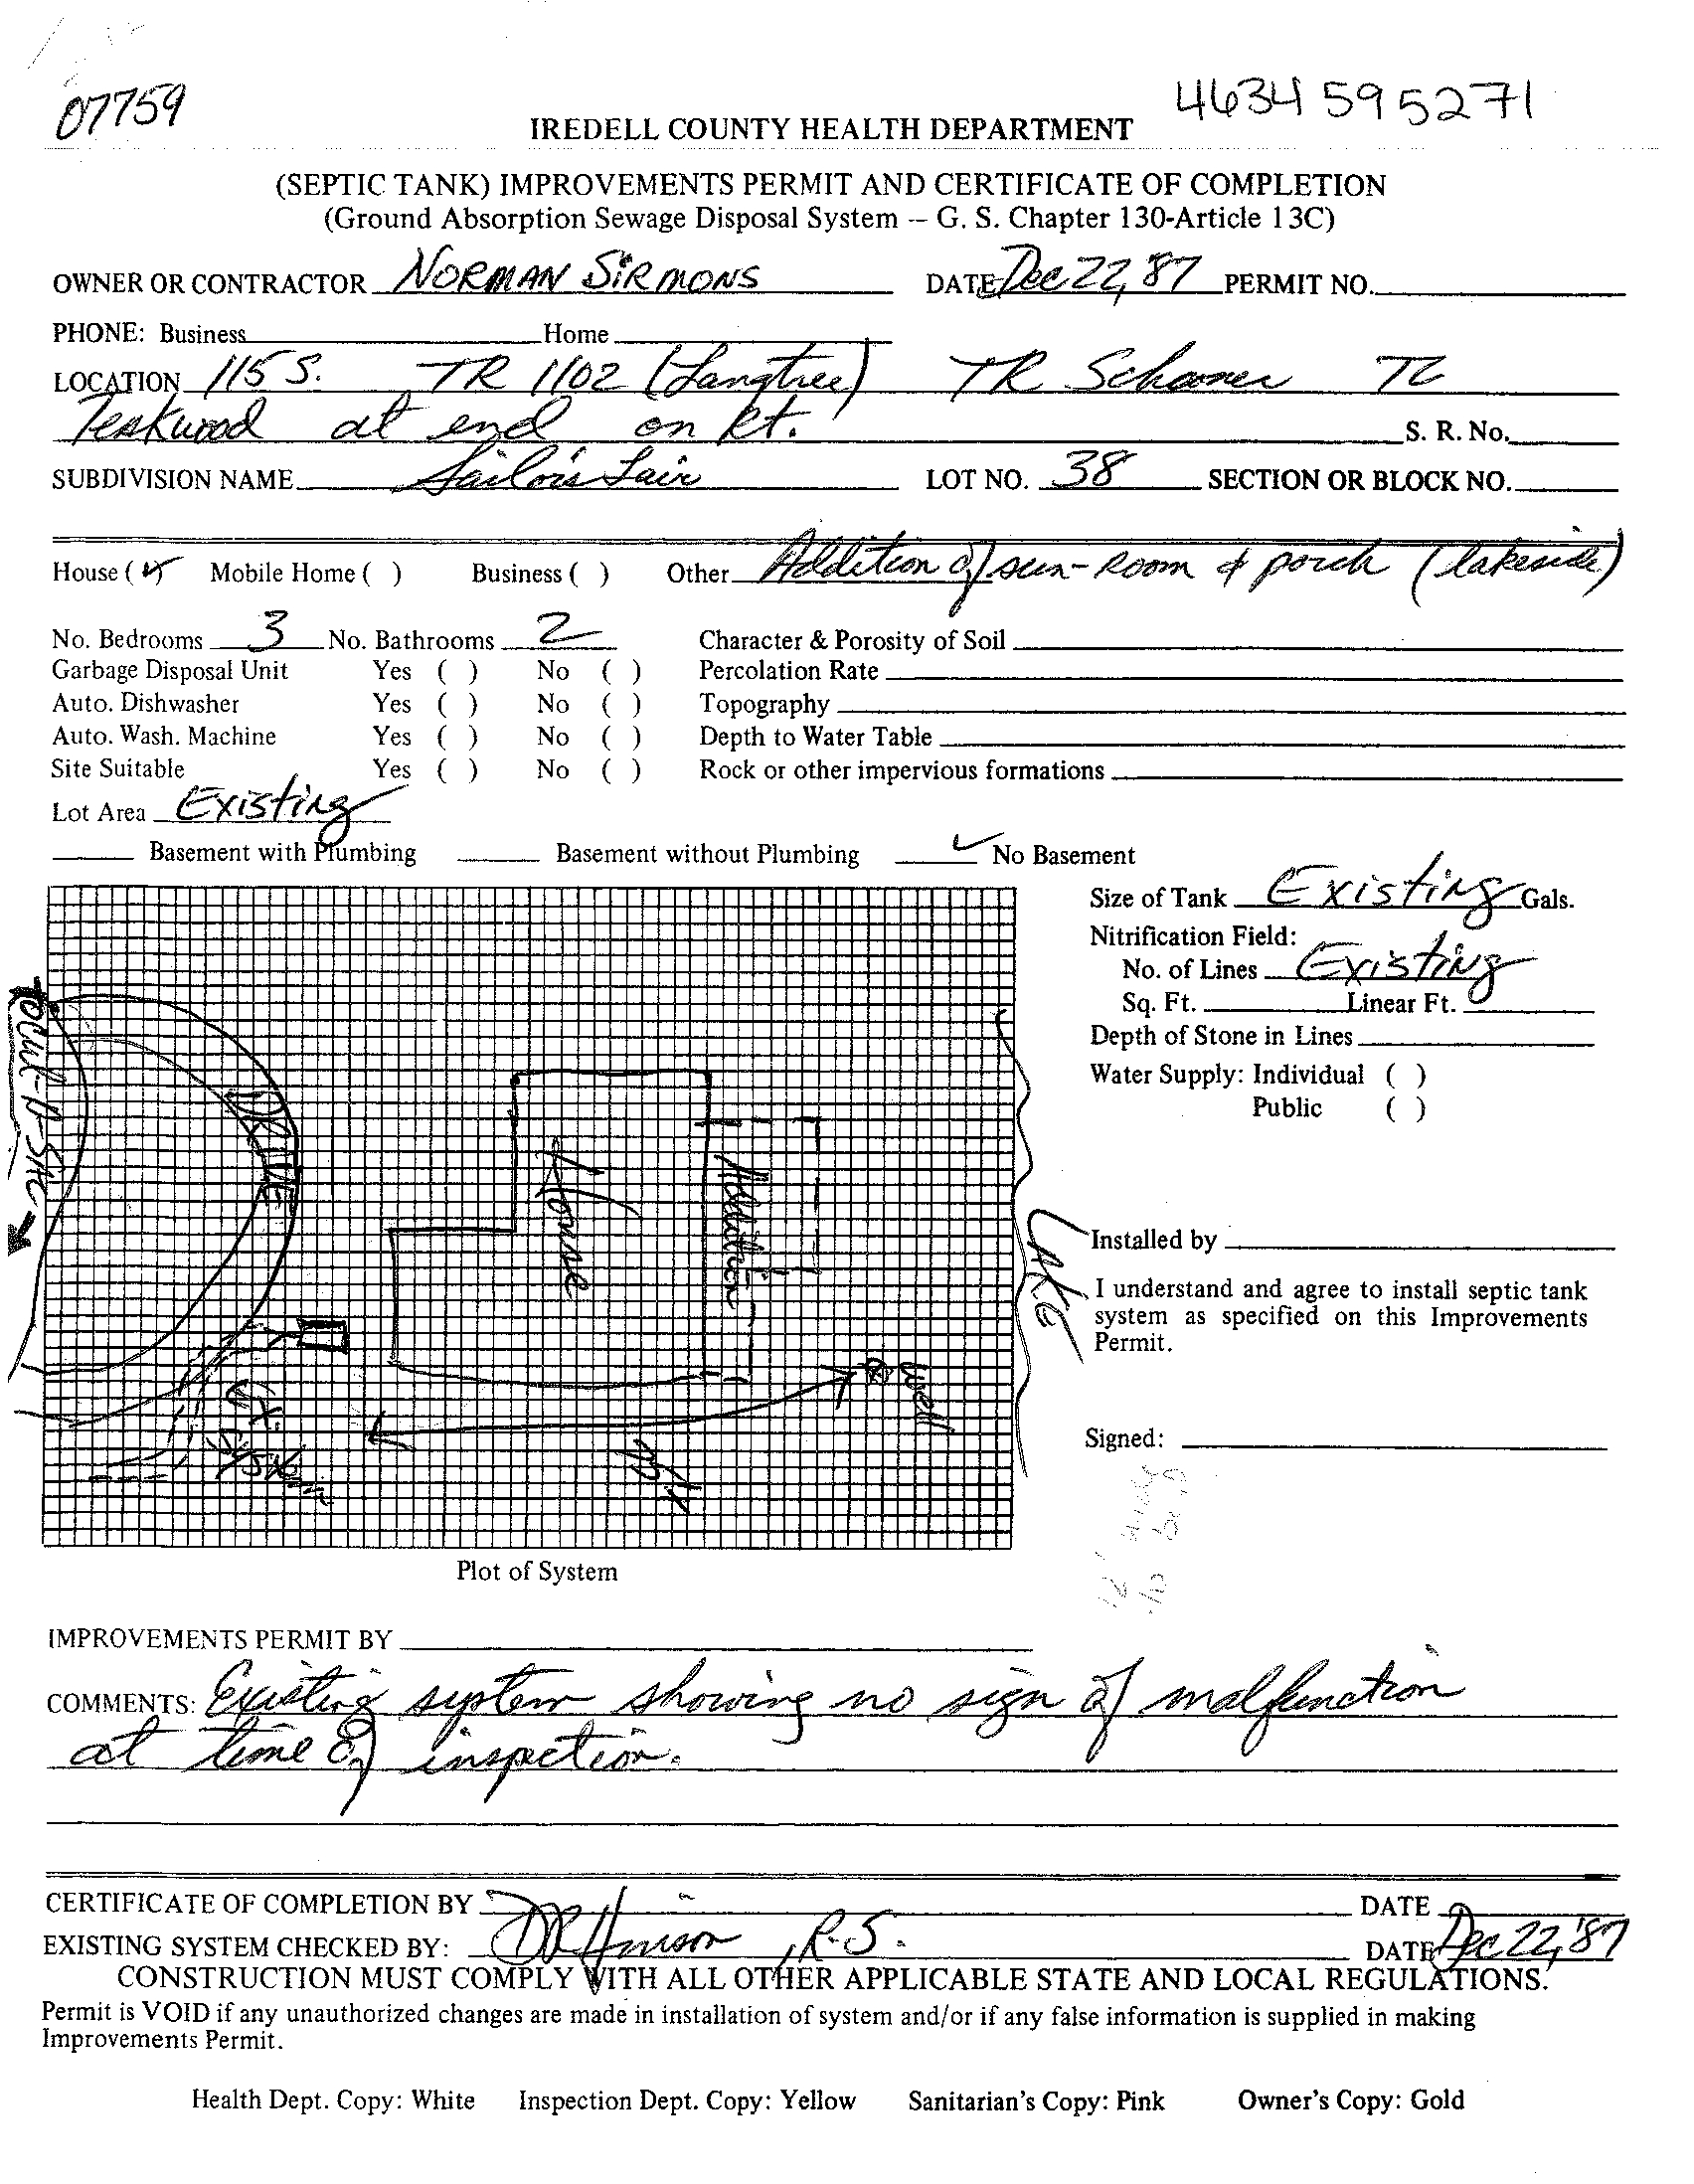 07759
4634 595271
IREDELL COUNTY HEALTH DEPARTMENT
(SEPTIC TANK) IMPROVEMENTS PERMIT AND CERTIFICATE OF COMPLETION
(Ground Absorption Sewage Disposal System -- G. S. Chapter 130-Article 13C)
OWNER OR CONTRACTOR NORMAN SIRMONS DATE Dec 22, 87 PERMIT NO.
PHONE: Business Home
LOCATION 115 S. TR 1102 (Langtree) TR Schooner TL
Teakwood at end on Rt. S. R. No.
SUBDIVISION NAME Sailor's Lair LOT NO. 38 SECTION OR BLOCK NO.
House (✓) Mobile Home ( ) Business ( ) Other Addition of sun-Room & porch (lakeside)
No. Bedrooms 3 No. Bathrooms 2 Character & Porosity of Soil
Garbage Disposal Unit Yes ( ) No ( ) Percolation Rate
Auto. Dishwasher Yes ( ) No ( ) Topography
Auto. Wash. Machine Yes ( ) No ( ) Depth to Water Table
Site Suitable Yes ( ) No ( ) Rock or other impervious formations
Lot Area Existing
Basement with Plumbing Basement without Plumbing ✓ No Basement
Size of Tank Existing Gals.
Nitrification Field:
No. of Lines Existing
Sq. Ft. Linear Ft.
Depth of Stone in Lines
Water Supply: Individual ( )
Public ( )
DRIVE
House
Addition
LAKE
Well
Ex. System
Installed by
I understand and agree to install septic tank
system as specified on this Improvements
Permit.
Signed:
Plot of System
IMPROVEMENTS PERMIT BY
COMMENTS: Existing system showing no sign of malfunction
at time of inspection.
CERTIFICATE OF COMPLETION BY DATE
EXISTING SYSTEM CHECKED BY: , R.S. DATE Dec 22, '87
CONSTRUCTION MUST COMPLY WITH ALL OTHER APPLICABLE STATE AND LOCAL REGULATIONS.
Permit is VOID if any unauthorized changes are made in installation of system and/or if any false information is supplied in making
Improvements Permit.
Health Dept. Copy: White Inspection Dept. Copy: Yellow Sanitarian's Copy: Pink Owner's Copy: Gold